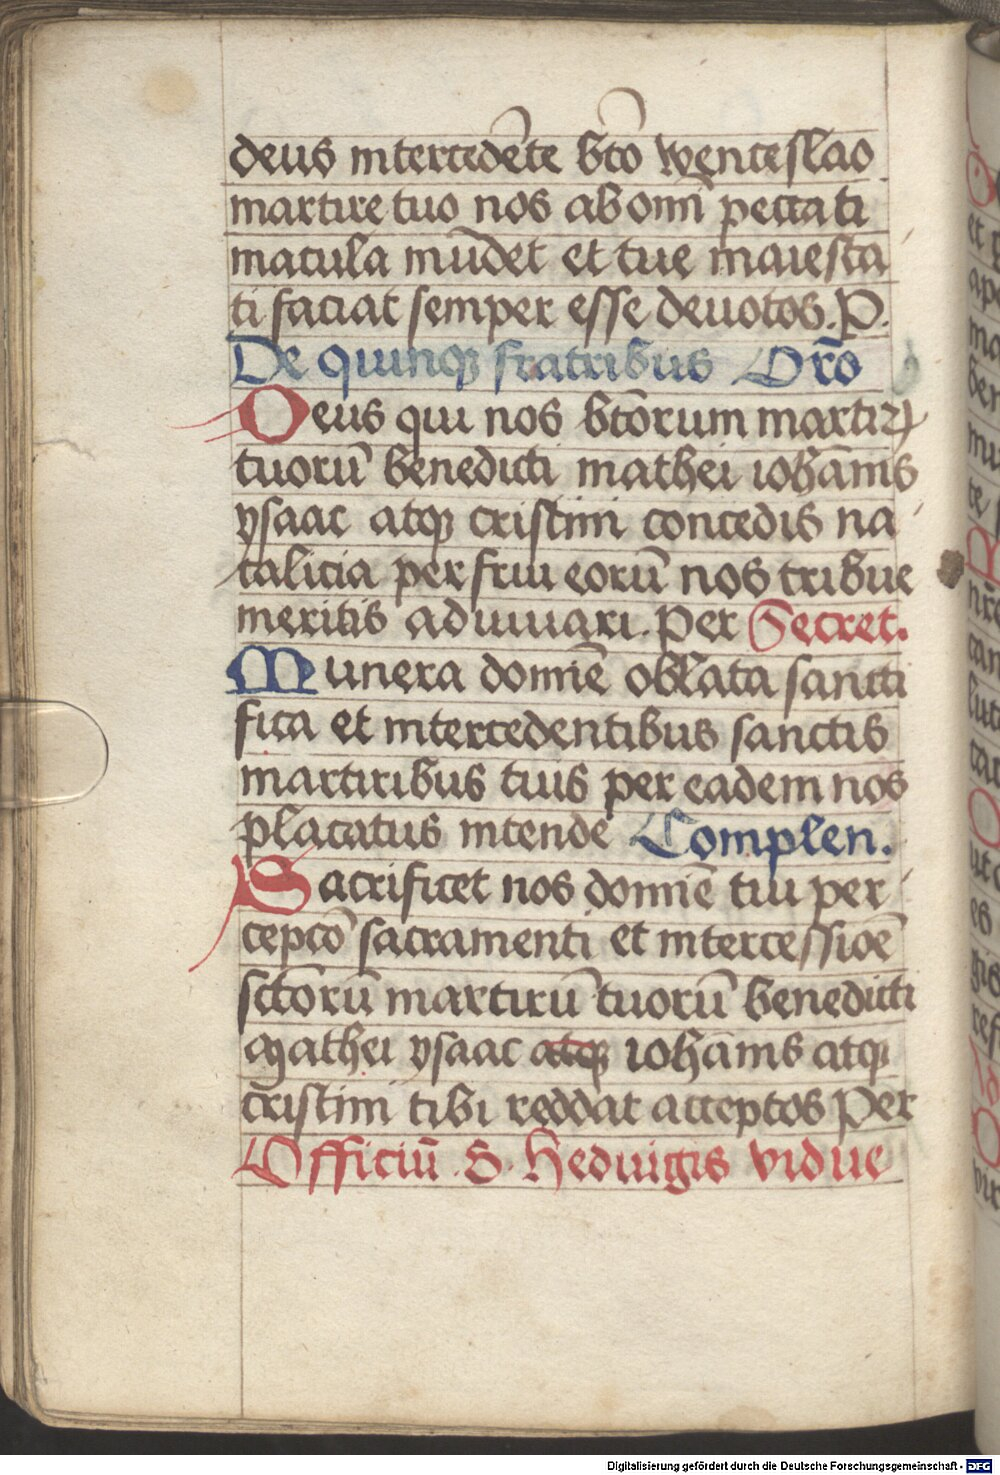 deus intercedēte btō wenceslao
martire tuo nos ab omī peccati
macula mūdet et tue maiesta
ti faciat semper esse deuotos. P.
De quinqꝫ fratribus Orō
Deus qui nos btōrum martiꝝ
tuorū benedicti mathei iohānis
ysaac atqꝫ cristini concedis na
talicia perfrui eorū nos tribue
meritis adiuuari. Per Secret.
Munera domiē oblata sancti
fica et intercedentibus sanctis
martiribus tuis per eadem nos
placatus intende Complen.
Sacrificet nos domiē tui per
cepcō sacramenti et intercessiōe
sctōrū martirū tuorū benedicti
Mathei ysaac atqꝫ iohānis atqꝫ
cristini tibi reddat acceptos Per
Officiū S. Heduigis vidue
Digitalisierung gefördert durch die Deutsche Forschungsgemeinschaft - DFG